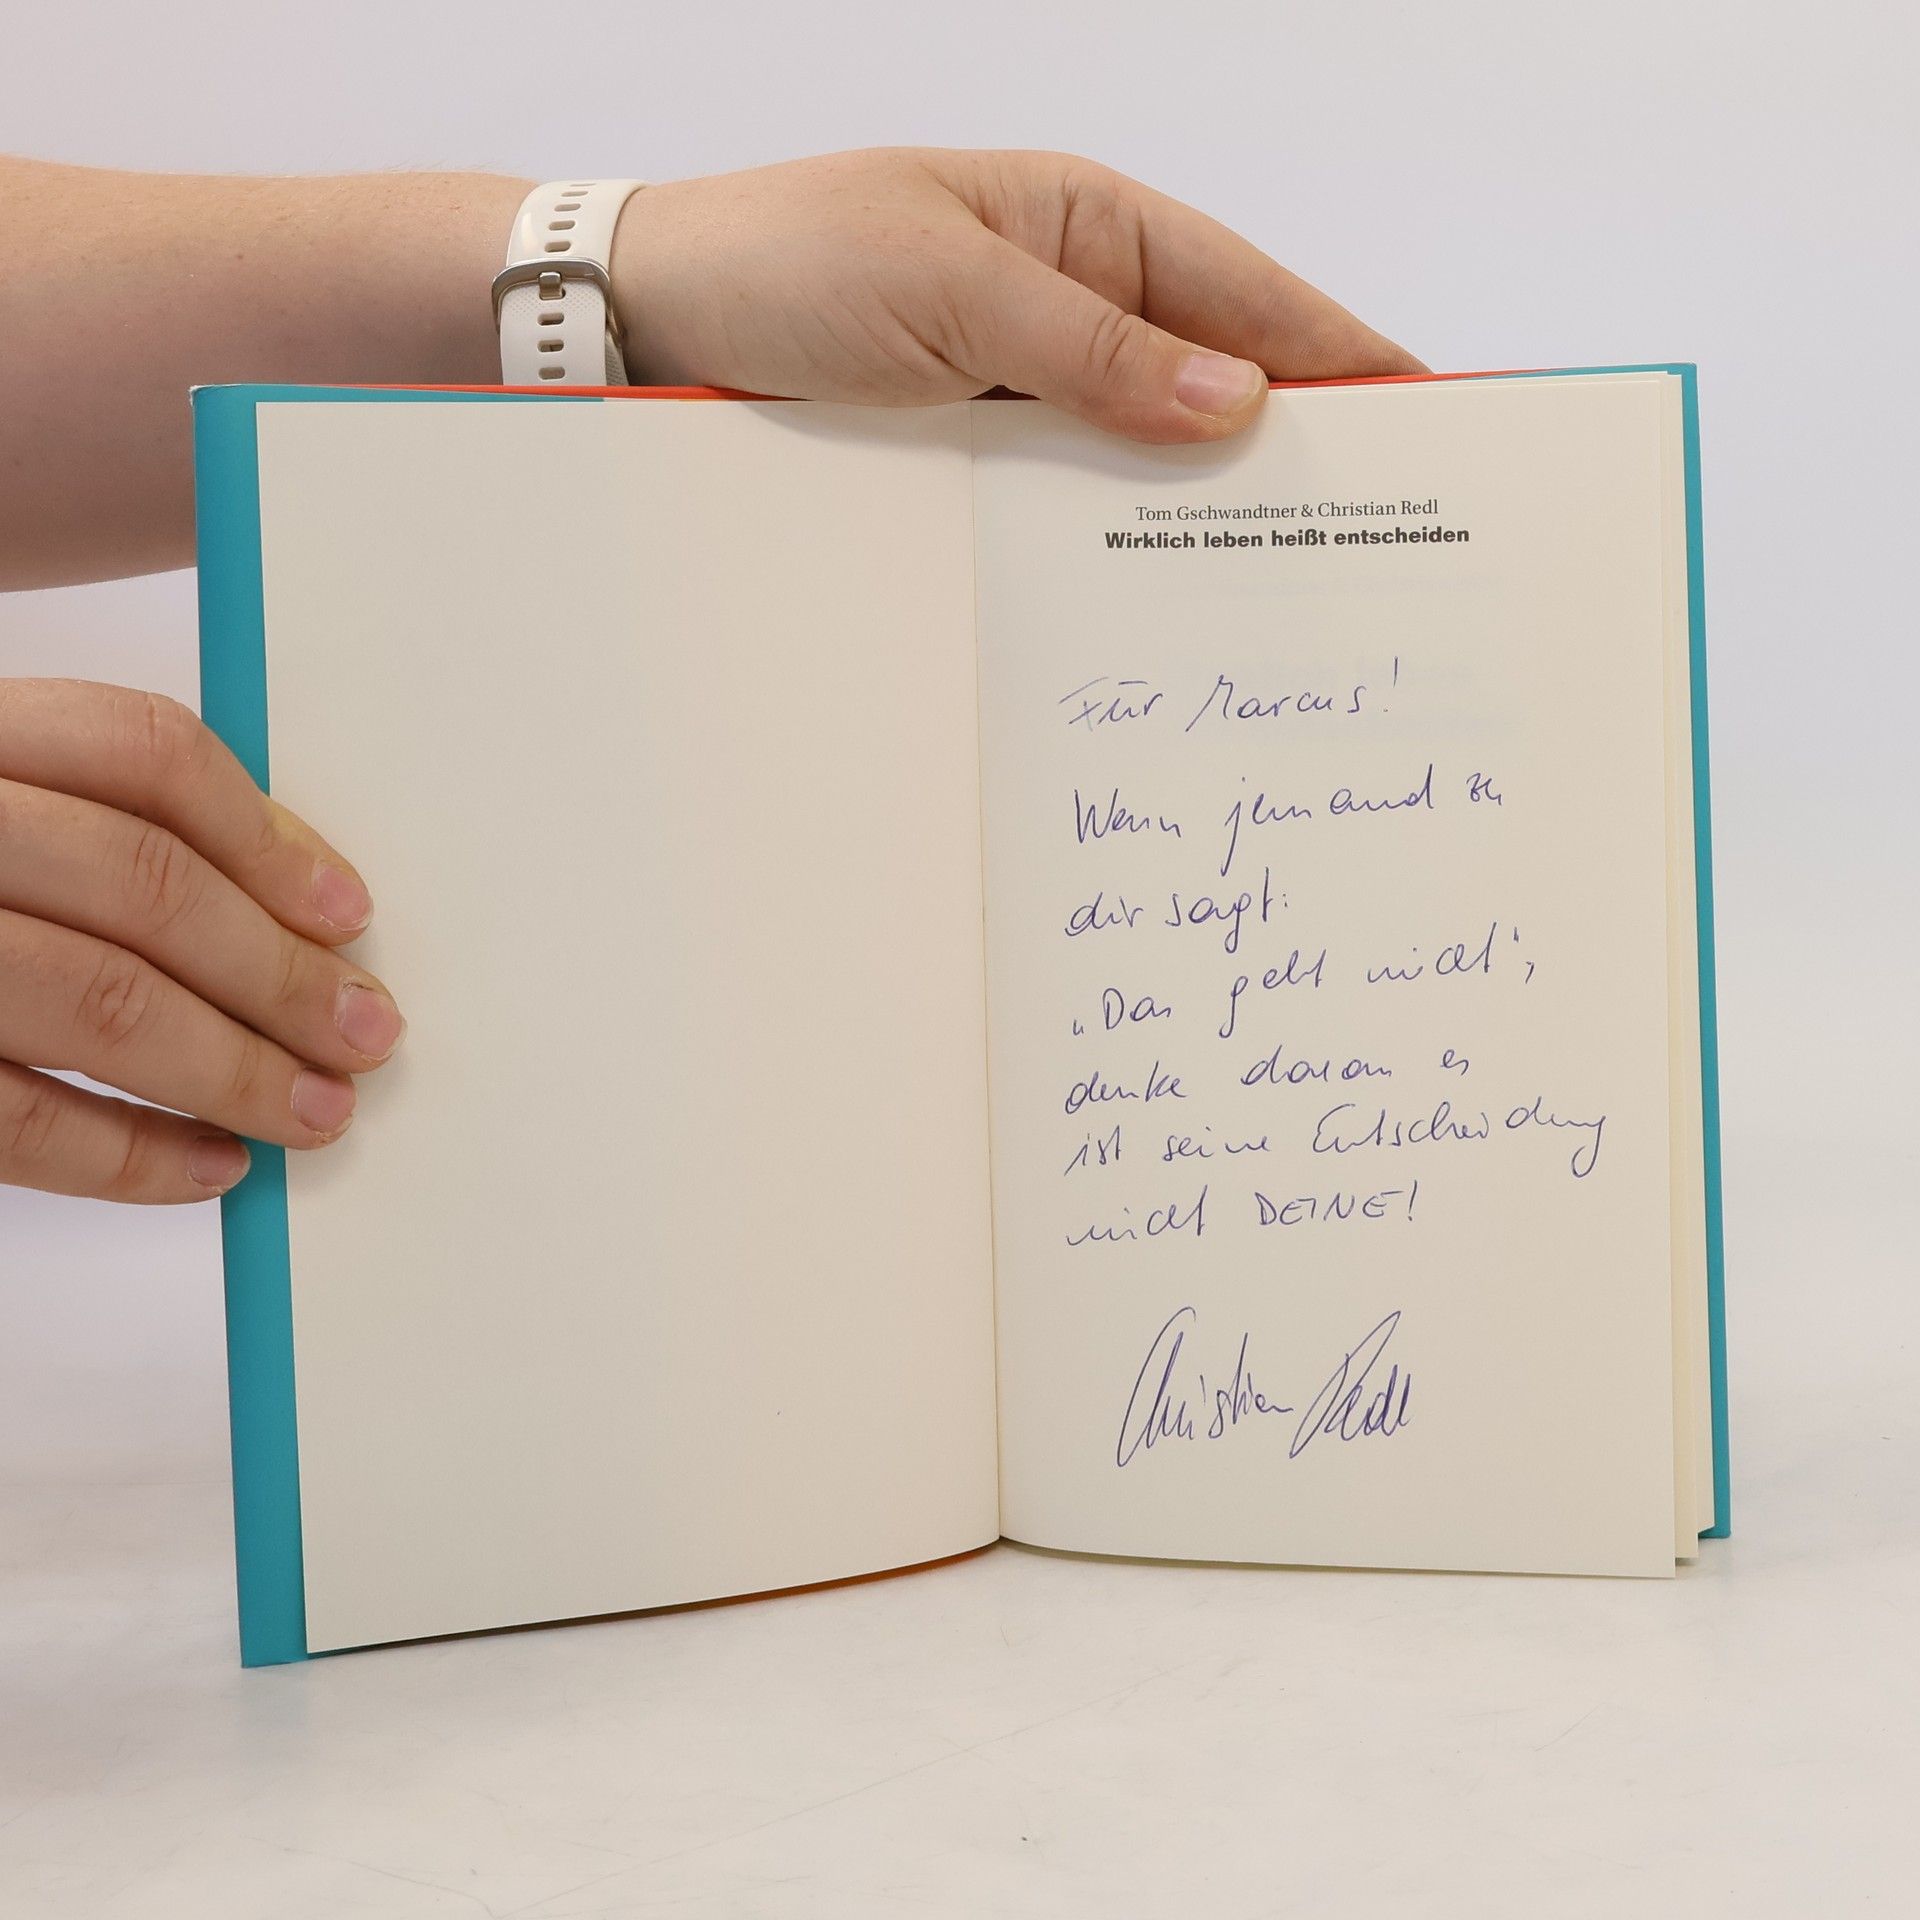 Tom Gschwandtner & Christian Redl
Wirklich leben heißt entscheiden
Für Marcus!
Wenn jemand zu
dir sagt:
„Das geht nicht",
denke daran es
ist seine Entscheidung
nicht DEINE!
Christian Redl